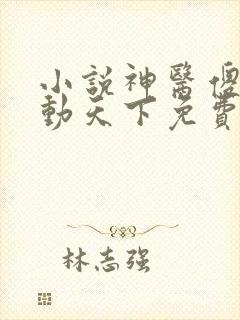 小說神醫傻
動天下免費
林志强